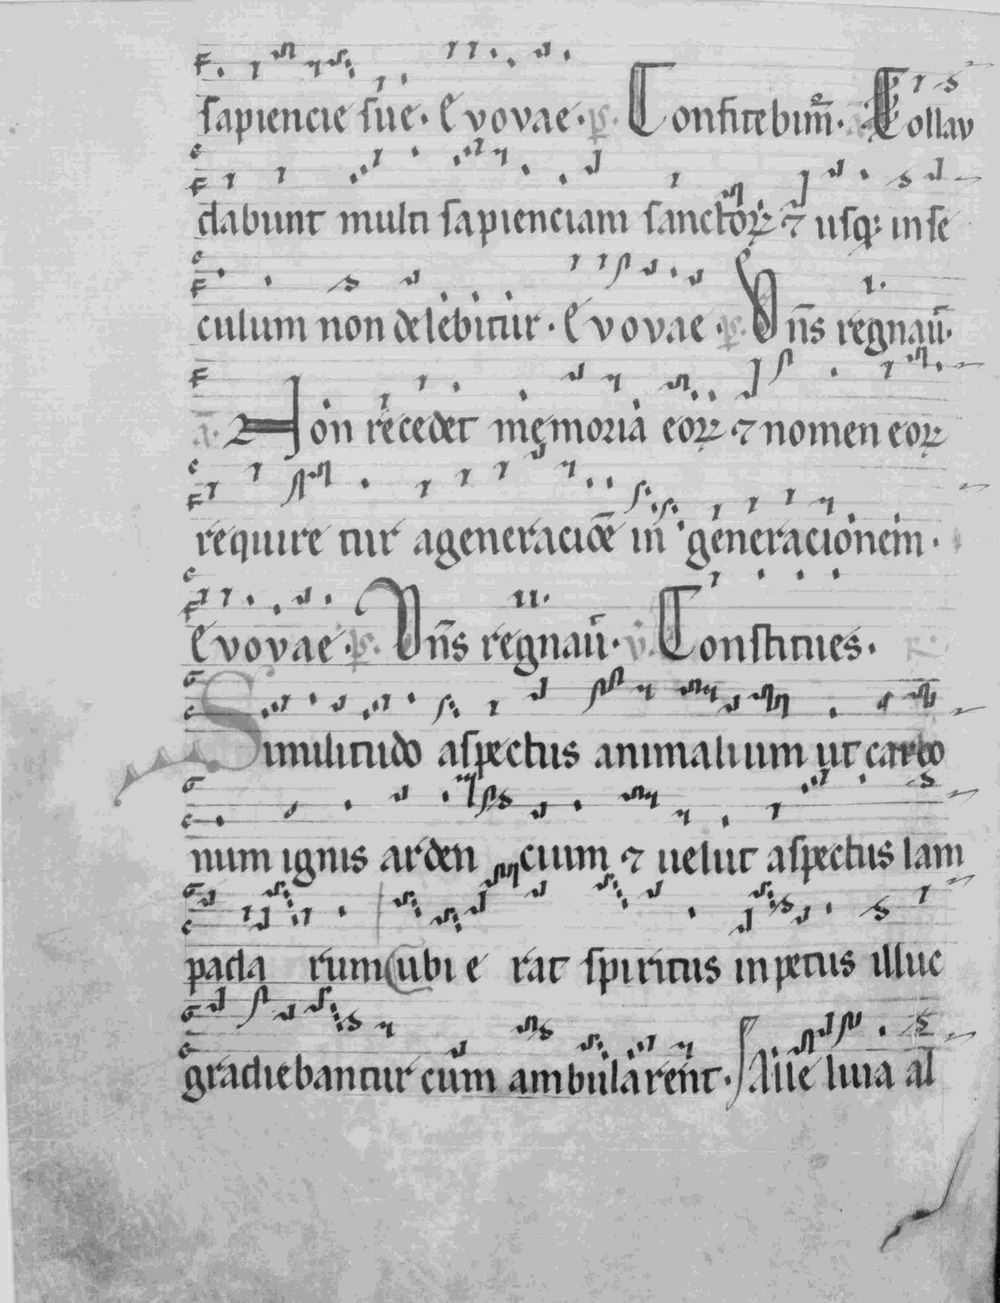 sapiencie sue. Evovae. p̄. Confitebim̄. Collau
dabunt multi sapienciam sanctoꝝ ⁊ usqꝫ in se
culum non delebitur. Evovae. p̄. Dn̄s regnaū.
a. Non recedet memoria eoꝝ ⁊ nomen eoꝝ
require tur a generaciōe in generacionem.
Evovae. p̄. Dn̄s regnaū. v̄. Constitues. R.
Similitudo aspectus animalium ut carbo
num ignis arden cium ⁊ uelut aspectus lam
pada rum ubi e rat spiritus inpetus illuc
gradiebantur cum ambularent. Alle luia al